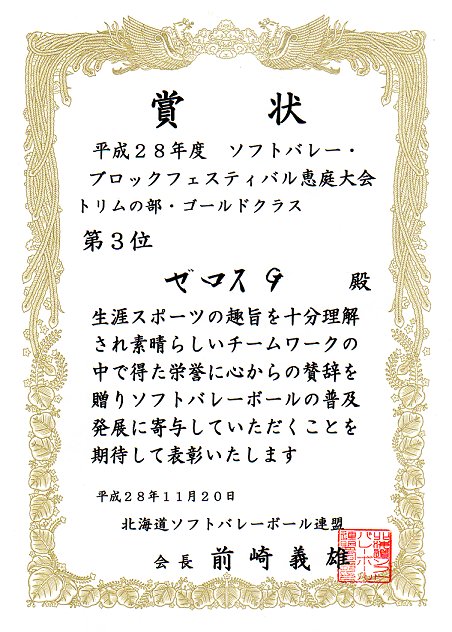 賞状
平成２８年度　ソフトバレー・
ブロックフェスティバル恵庭大会
トリムの部・ゴールドクラス
第３位
ゼロスＧ　殿
生涯スポーツの趣旨を十分理解
され素晴らしいチームワークの
中で得た栄誉に心からの賛辞を
贈りソフトバレーボールの普及
発展に寄与していただくことを
期待して表彰いたします
平成２８年１１月２０日
北海道ソフトバレーボール連盟
会長　前崎義雄